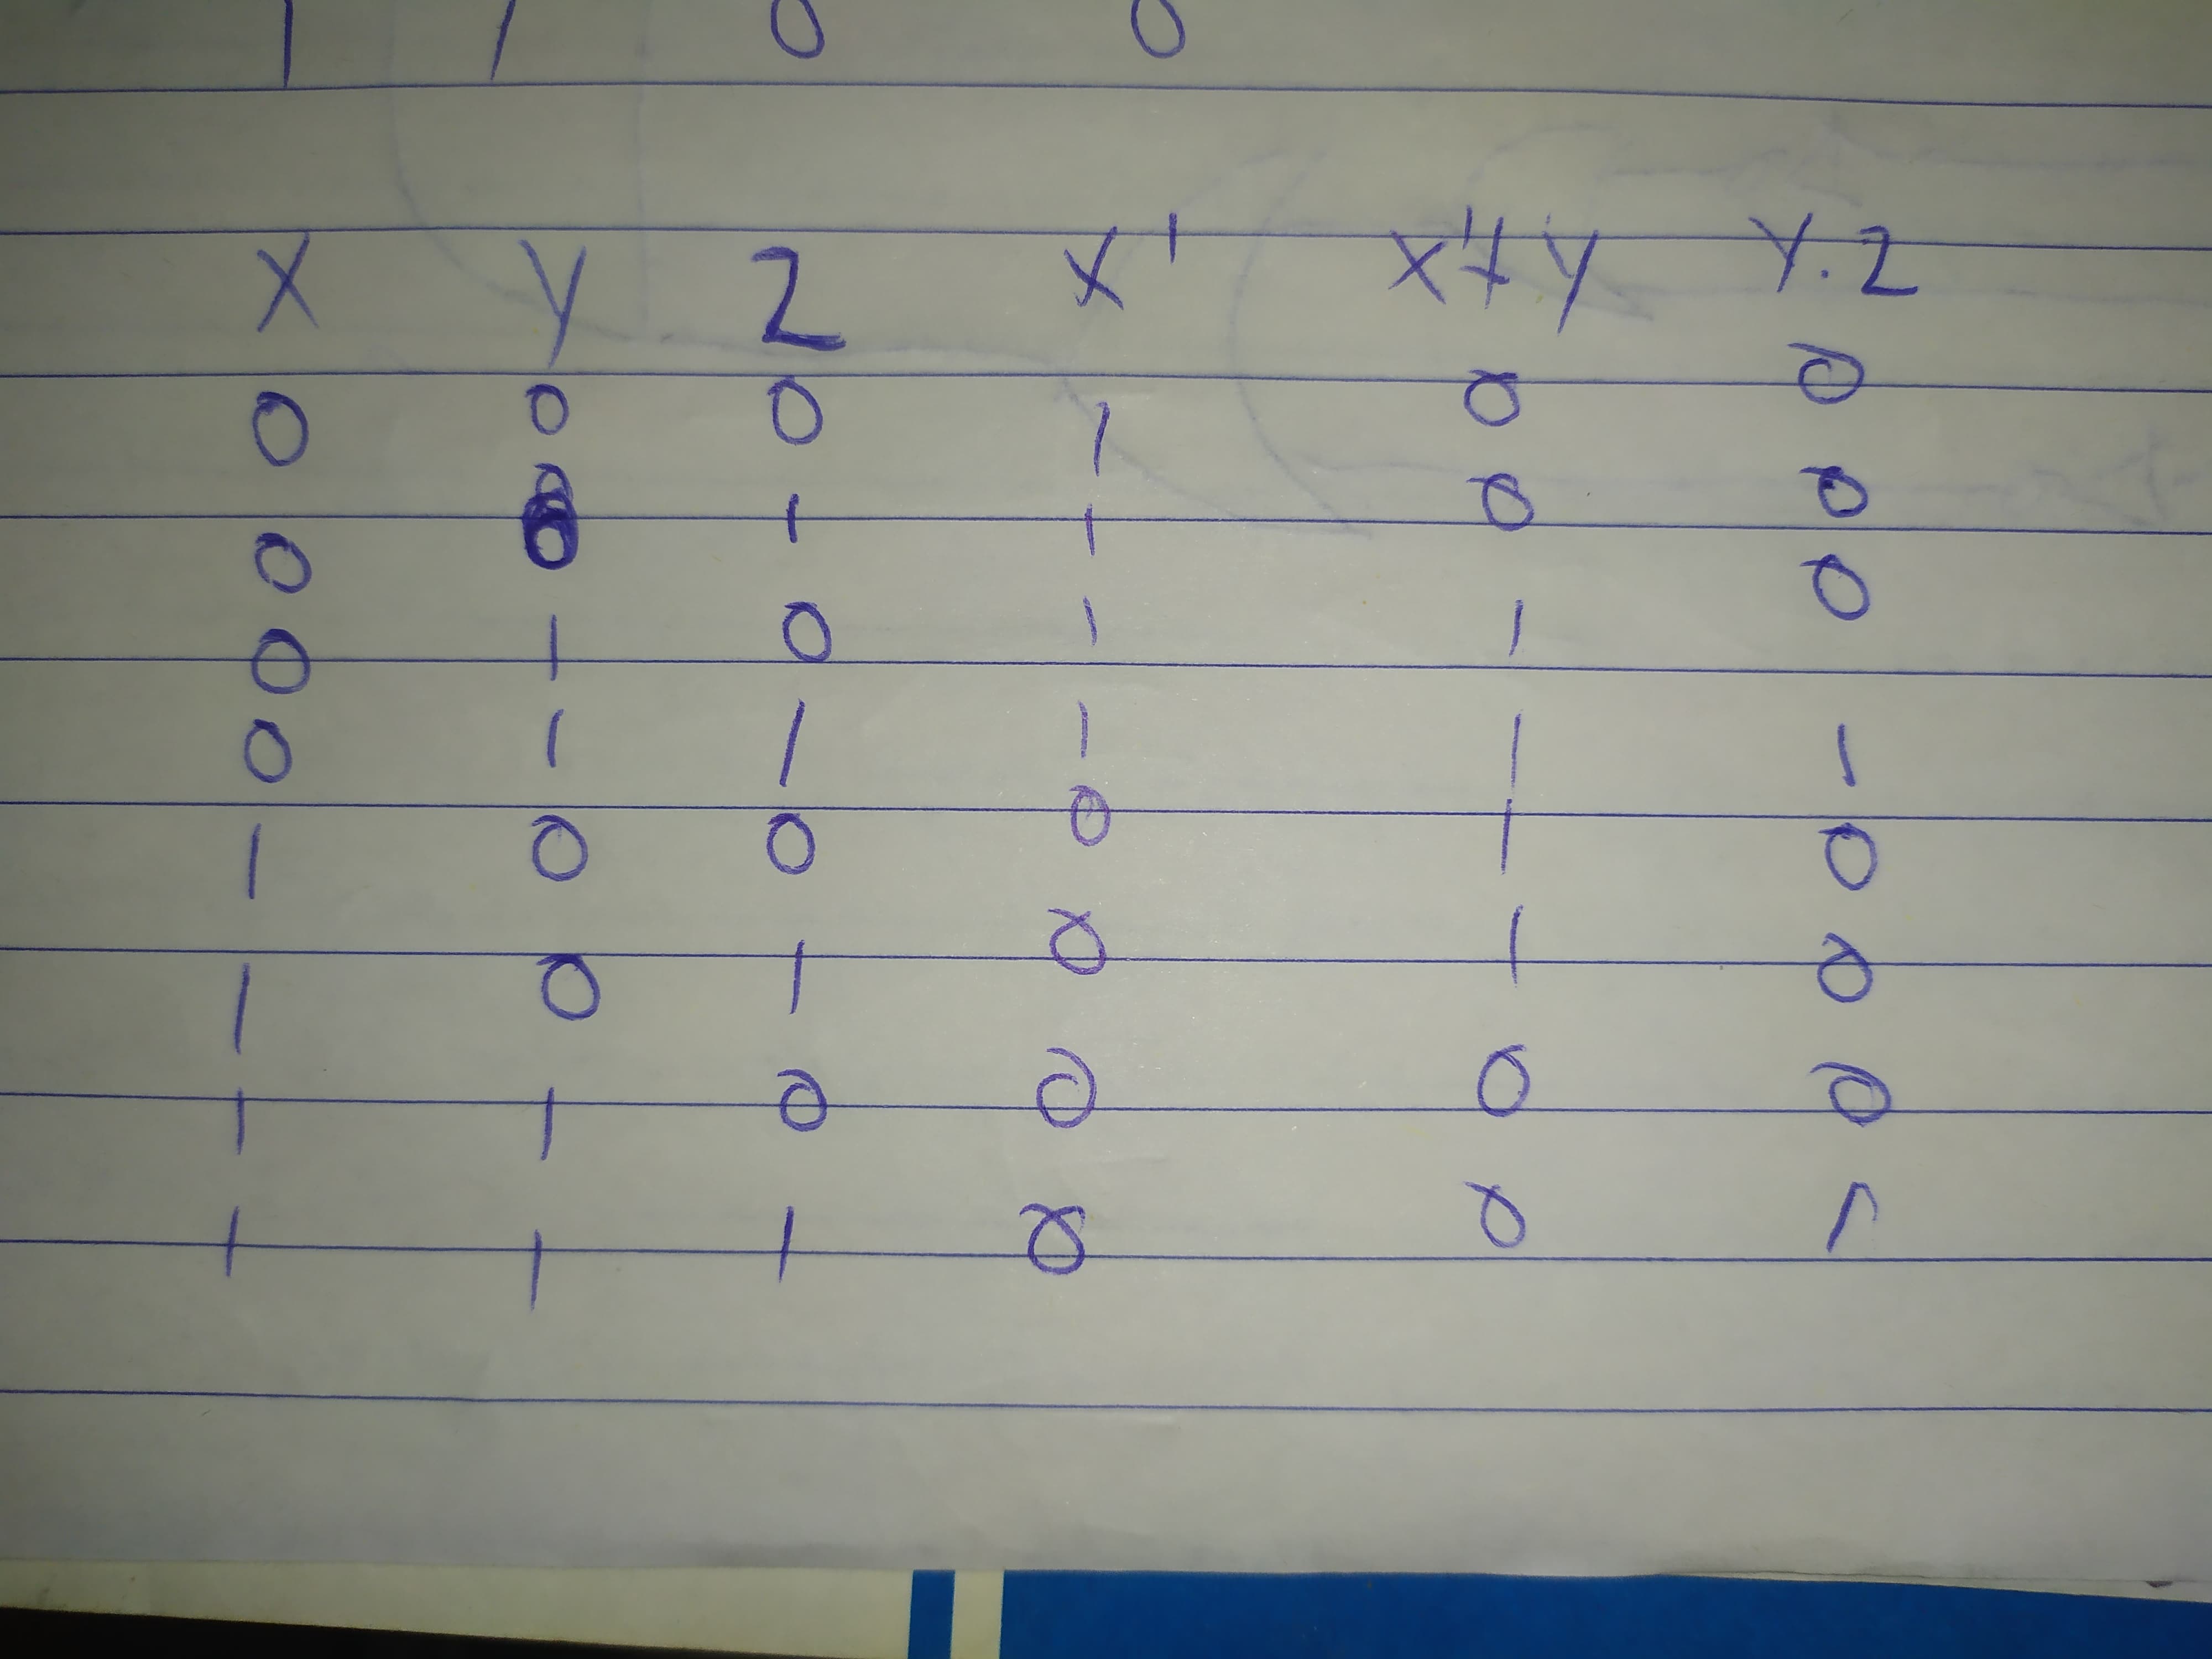 1 1 0 0
X Y Z X' X'+Y Y.Z
0 0 0 1 0 0
0 0 1 1 0 0
0 1 0 1 1 0
0 1 1 1 1 1
1 0 0 0 1 0
1 0 1 0 1 0
1 1 0 0 0 0
1 1 1 0 0 1